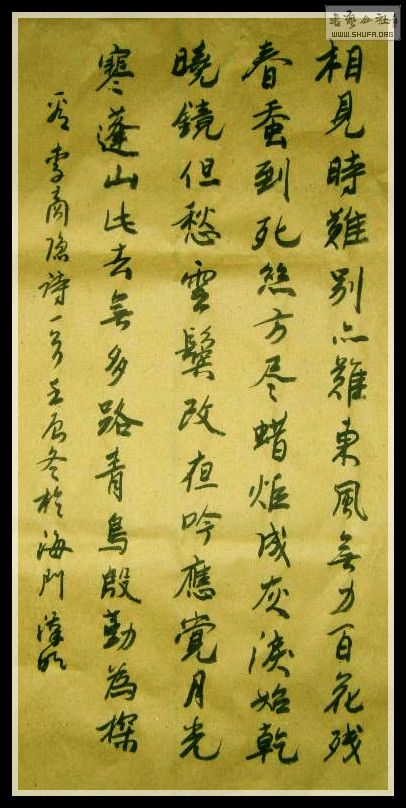 相見時難别亦難東風無力百花残
春蚕到死絲方尽蜡炬成灰淚始乾
曉鏡但愁雲鬓改夜吟應覺月光
寒蓬山此去無多路青鳥殷勤為探
看 李商隐詩一首壬辰冬於海門
書藝公社
WWW.SHUFA.ORG